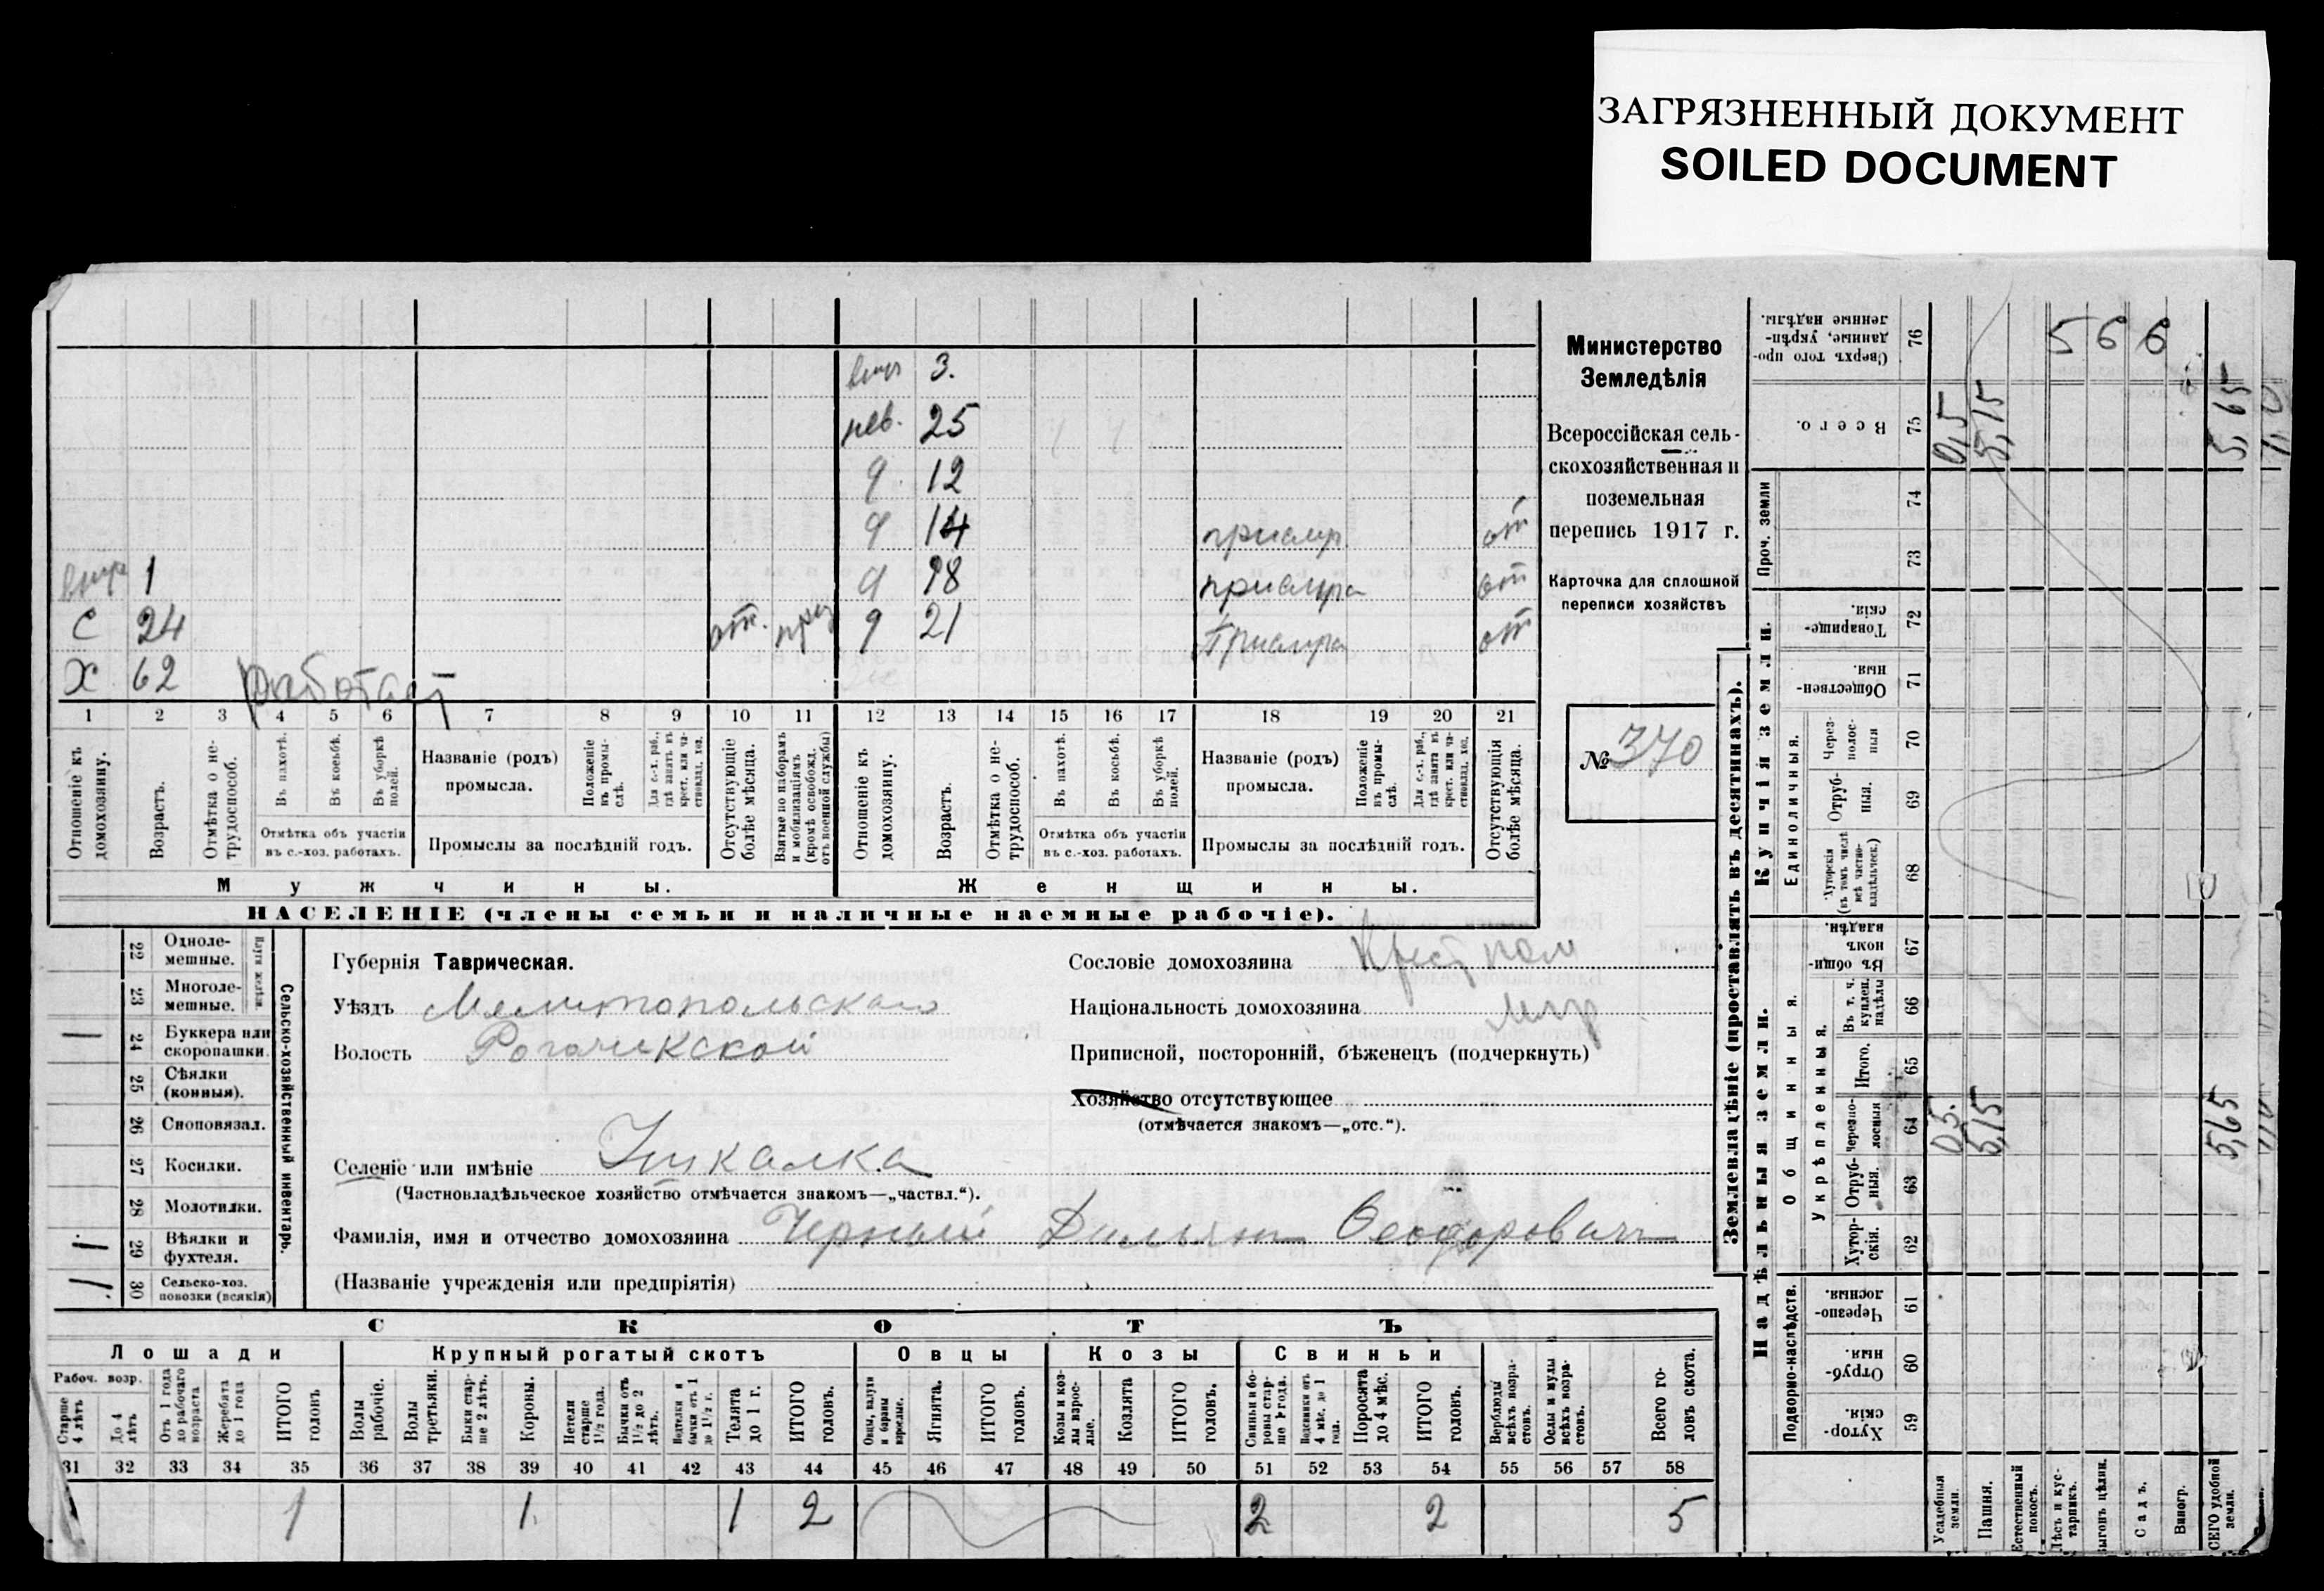 ЗАГРЯЗНЕННЫЙ ДОКУМЕНТ
SOILED DOCUMENT
внуч 3.
нев. 25
9 12
9 14 от
внук 1 9 18 от
С 24 от. 9 21 от
Х 62 работает
1 2 3 4 5 6 7 8 9 10 11 12 13 14 15 16 17 18 19 20 21
Отношеніе къ домохозяину.
Возрастъ.
Отмѣтка о не-трудоспособ.
Въ пахотѣ.
Въ косьбѣ.
Въ уборкѣ полей.
Отмѣтка объ участіи въ с.-хоз. работахъ.
Названіе (родъ) промысла.
Положеніе въ промы-слѣ.
Для с.-х. раб., гдѣ занятъ въ крест. или ча-стновлад. хоз.
Промыслы за послѣдній годъ.
Отсутствующіе болѣе мѣсяца.
Взятые по наборамъ и мобилизаціямъ (кромѣ освобожд. отъ военной службы)
Отношеніе къ домохозяину.
Возрастъ.
Отмѣтка о не-трудоспособ.
Въ пахотѣ.
Въ косьбѣ.
Въ уборкѣ полей.
Отмѣтка объ участіи въ с.-хоз. работахъ.
Названіе (родъ) промысла.
Положеніе въ промы-слѣ.
Для с.-х. раб., гдѣ занята въ крест. или ча-стновлад. хоз.
Промыслы за послѣдній годъ.
Отсутствующія болѣе мѣсяца.
Мужчины. Женщины.
НАСЕЛЕНІЕ (члены семьи и наличные наемные рабочіе).
Министерство
Земледѣлія
Всероссійская сель-
скохозяйственная и
поземельная
перепись 1917 г.
Карточка для сплошной
переписи хозяйствъ
№ 370
22 Однолемешные.
23 Многолемешные.
24 Буккера или скоропашки. 1
25 Сѣялки (конныя).
26 Сноповязал.
27 Косилки.
28 Молотилки.
29 Вѣялки и фухтеля. 1
30 Сельско-хоз. повозки (всякія) 1
Сельско-хозяйственный инвентарь.
Губернія Таврическая.
Уѣздъ Мелитопольскаго
Волость Рогачикской
Селеніе или имѣніе Ушкалка
(Частновладѣльческое хозяйство отмѣчается знакомъ—„частвл.“).
Фамилія, имя и отчество домохозяина Черный Дамьян Феодорович
(Названіе учрежденія или предпріятія)
Сословіе домохозяина Крест
Національность домохозяина
Приписной, посторонній, бѣженецъ (подчеркнуть)
Хозяйство отсутствующее
(отмѣчается знакомъ—„отс.“).
СКОТЪ
Лошади Крупный рогатый скотъ Овцы Козы Свиньи
Рабоч. возр.
Старше 4 лѣтъ
До 4 лѣтъ
Отъ 1 года до рабочаго возраста
Жеребята до 1 года
ИТОГО головъ
Волы рабочіе.
Волы третьяки.
Быки стар-ше 2 лѣтъ.
Коровы.
Нетели старше 1½ года.
Бычки отъ 1½ до 2 лѣтъ.
Подтелки и бычки отъ 1 до 1½ г.
Телята до 1 г.
ИТОГО головъ.
Овцы, валухи и бараны взрослые.
Ягнята.
ИТОГО головъ.
Козы и коз-лы взрос-лые.
Козлята
ИТОГО головъ.
Свиньи и бо-ровы стар-ше 1 года.
Подсвинки отъ 4 мѣс. до 1 года.
Поросята до 4 мѣс.
ИТОГО головъ.
Верблюды всѣхъ возра-стовъ.
Ослы и мулы всѣхъ возра-стовъ.
Всего го-ловъ скота.
31 32 33 34 35 36 37 38 39 40 41 42 43 44 45 46 47 48 49 50 51 52 53 54 55 56 57 58
1 1 1 2 2 2 5
Землевладѣніе (проставлять въ десятинахъ).
Купчія земли.
Надѣльныя земли.
Сверхъ того про-данные, укрѣп-ленные надѣлы. 76 5 6 6
Всего. 75 0,5 5,15 5,65
Проч. земли 74 73
Товарище-скія. 72
Обществен-ныя. 71
Единоличныя.
Черезполосныя 70
Отруб-ныя. 69
Хуторскія (въ томъ числѣ всѣ частно-владѣльческ.) 68
Общинныя.
Въ общин-номъ владѣн. 67
Укрѣпленныя.
Въ т. ч. куплен. надѣлы 66
Итого. 65
Черезпо-лосныя 64 0,5. 5,15 5,65
Отруб-ныя. 63
Хутор-скія. 62
Подворно-наслѣдств.
Черезпо-лосныя. 61
Отруб-ныя. 60
Хутор-скія. 59
Усадебныя земли.
Пашня.
Естественный покосъ.
Лѣсъ и кус-тарникъ.
Выгонъ цѣлин.
Садъ.
Виногр.
ВСЕГО удобной земли.